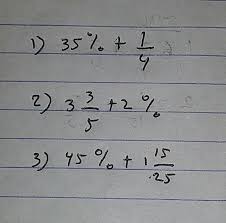 1) 35% + 1/4
2) 3 3/5 + 2%
3) 45% + 1 15/25